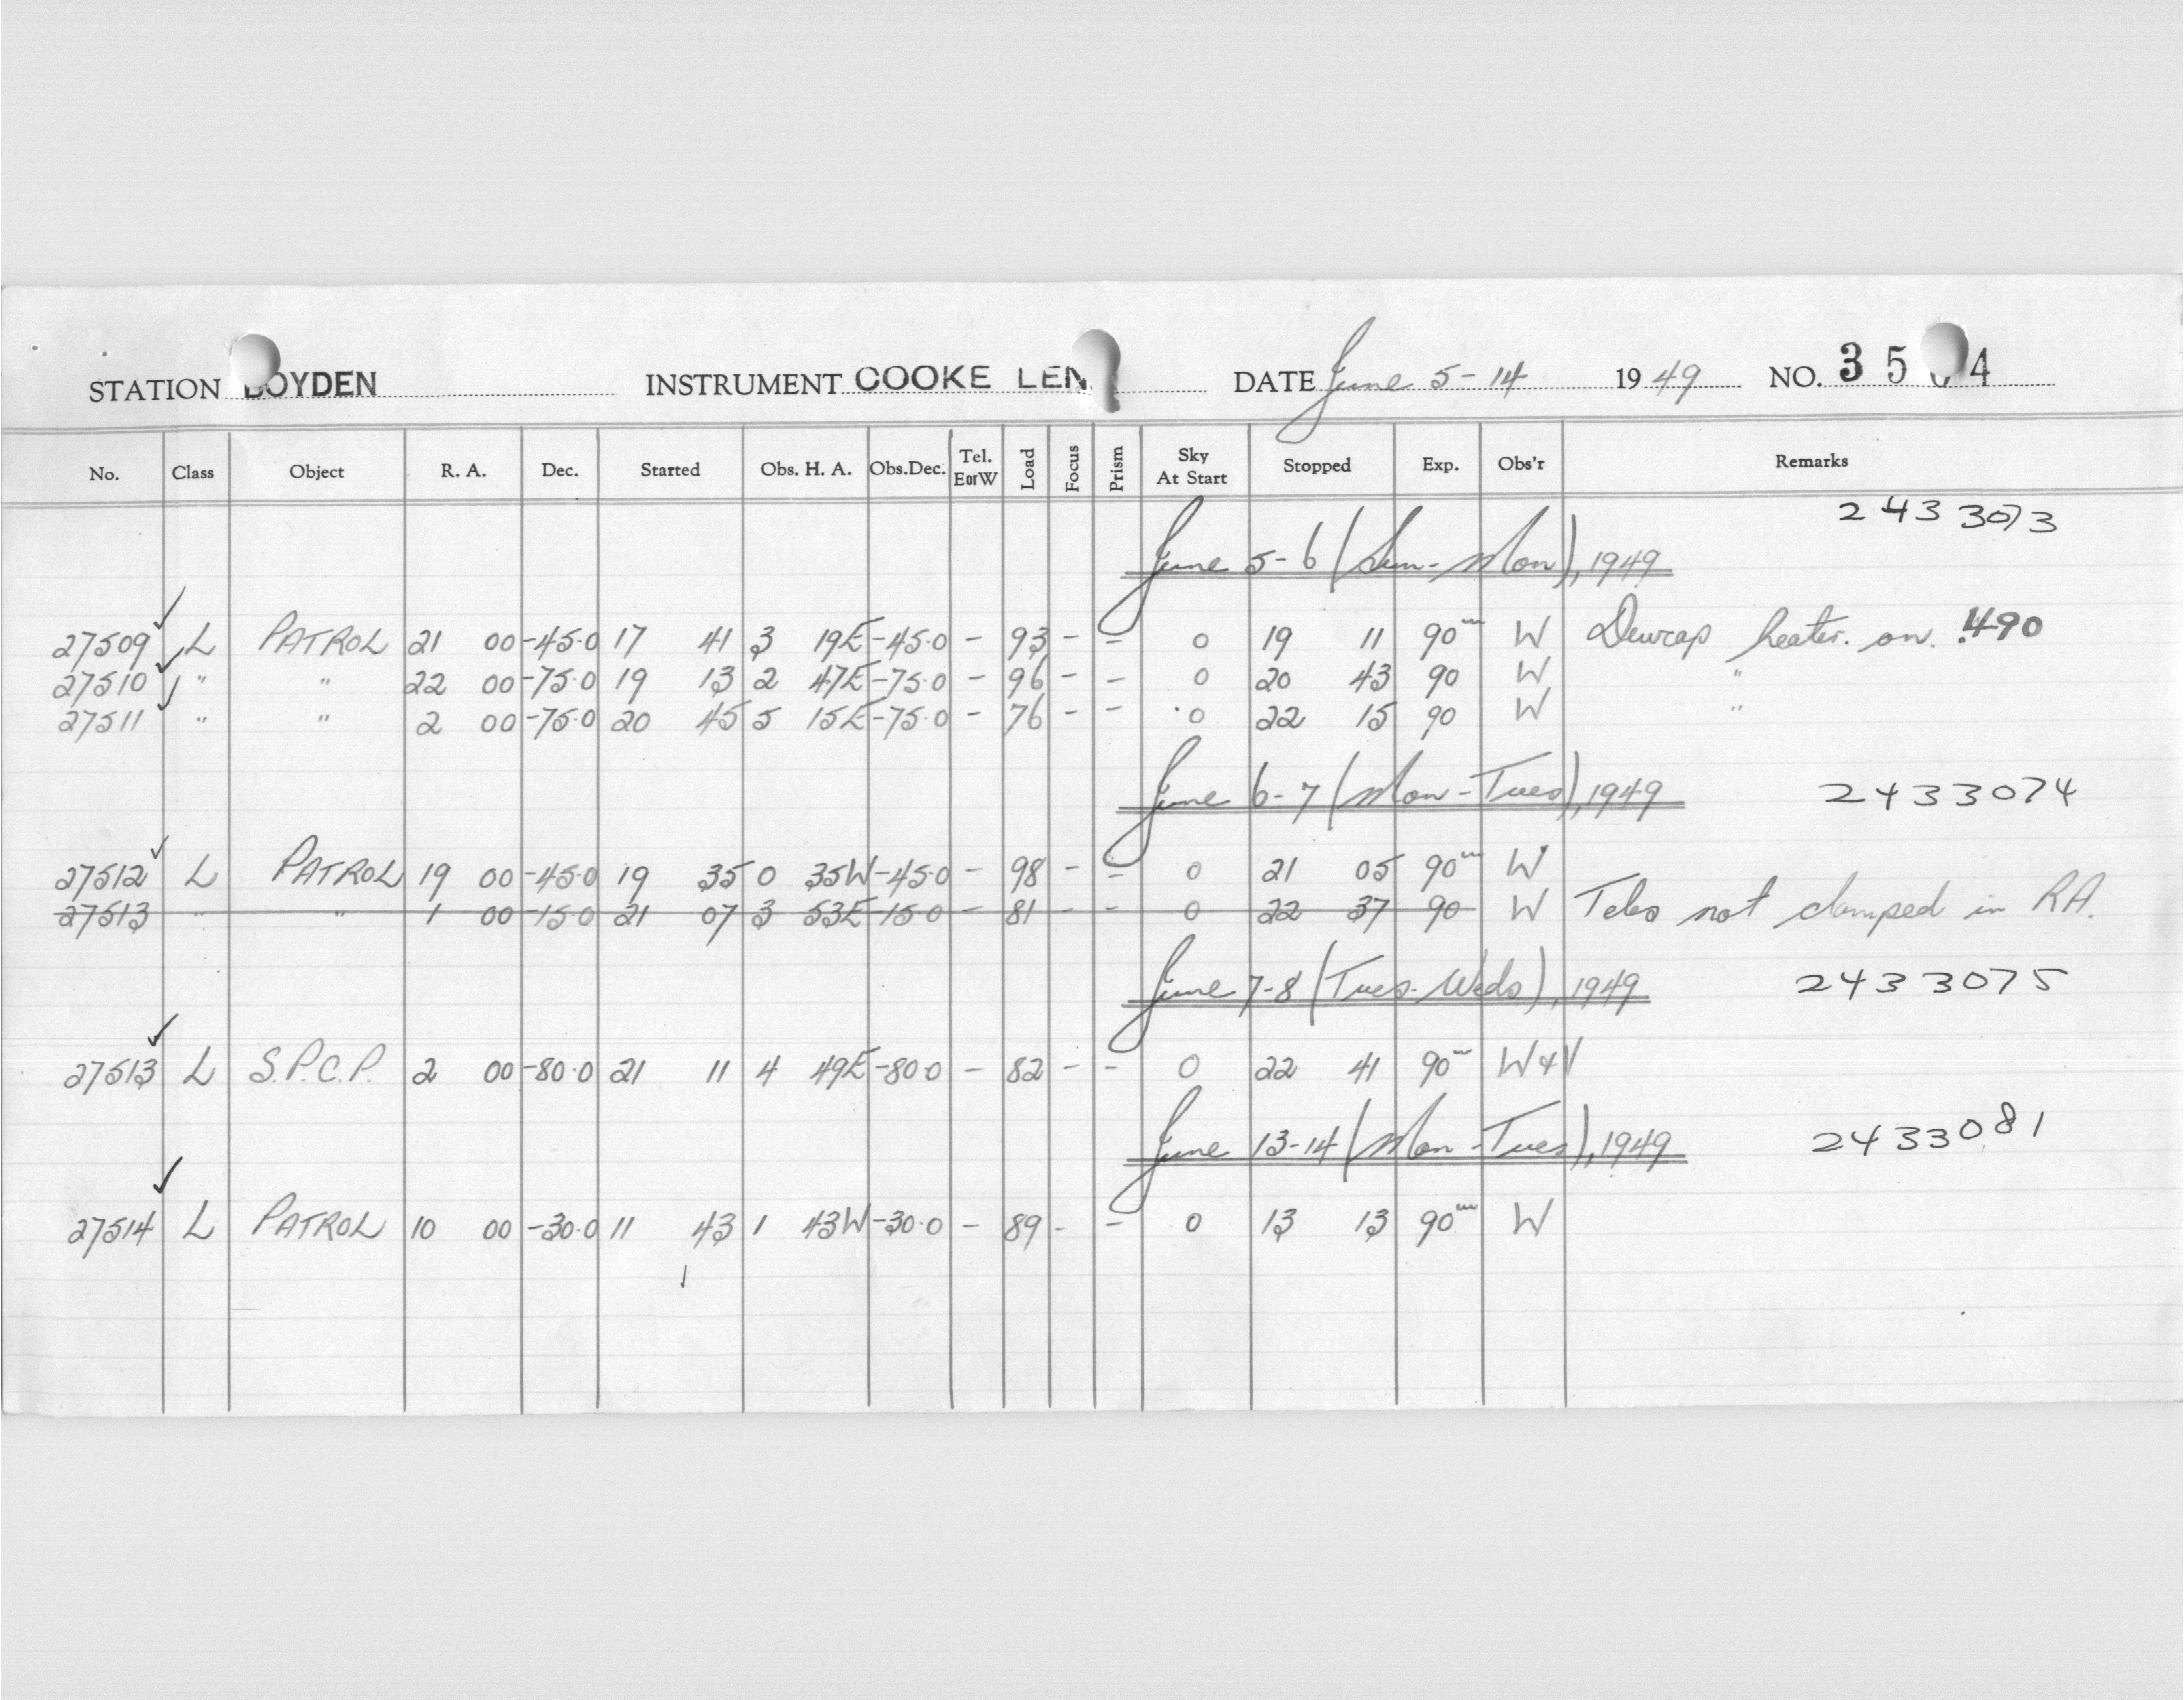 STATION BOYDEN INSTRUMENT COOKE LEN DATE June 5-14 1949 NO. 35 4
No. Class Object R. A. Dec. Started Obs. H. A. Obs.Dec. Tel. EorW Load Focus Prism Sky At Start Stopped Exp. Obs'r Remarks
2433073
June 5-6 (Sun-Mon), 1949
27509 ✓ L PATROL 21 00 -45.0 17 41 3 19E -45.0 - 93 - - 0 19 11 90m W Dewcap heater. on. .490
27510 ✓ " " 22 00 -75.0 19 13 2 47E -75.0 - 96 - - 0 20 43 90 W "
27511 ✓ " " 2 00 -75.0 20 45 5 15E -75.0 - 76 - - 0 22 15 90 W "
June 6-7 (Mon-Tues), 1949 2433074
27512 ✓ L PATROL 19 00 -45.0 19 35 0 35W -45.0 - 98 - - 0 21 05 90m W
27513 " " 1 00 -15.0 21 07 3 53E -15.0 - 81 - - 0 22 37 90 W Teles not clamped in RA.
June 7-8 (Tues-Weds), 1949 2433075
27513 ✓ L S.P.C.P. 2 00 -80.0 21 11 4 49E -80.0 - 82 - - 0 22 41 90m W & V
June 13-14 (Mon-Tues), 1949 2433081
27514 ✓ L PATROL 10 00 -30.0 11 43 1 43W -30.0 - 89 - - 0 13 13 90m W